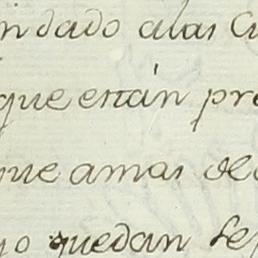 ndado alas Cu
que están pre
que amas de
yo quedan se